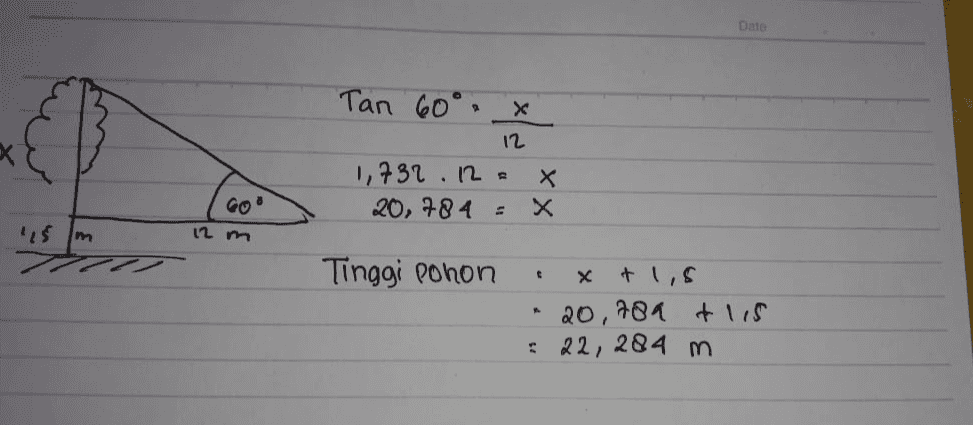 Date
Tan 60° = x
12
1,732 . 12 = x
20,784 = x
x
60°
1,5 m
12 m
Tinggi pohon = x + 1,5
= 20,784 + 1,5
= 22,284 m